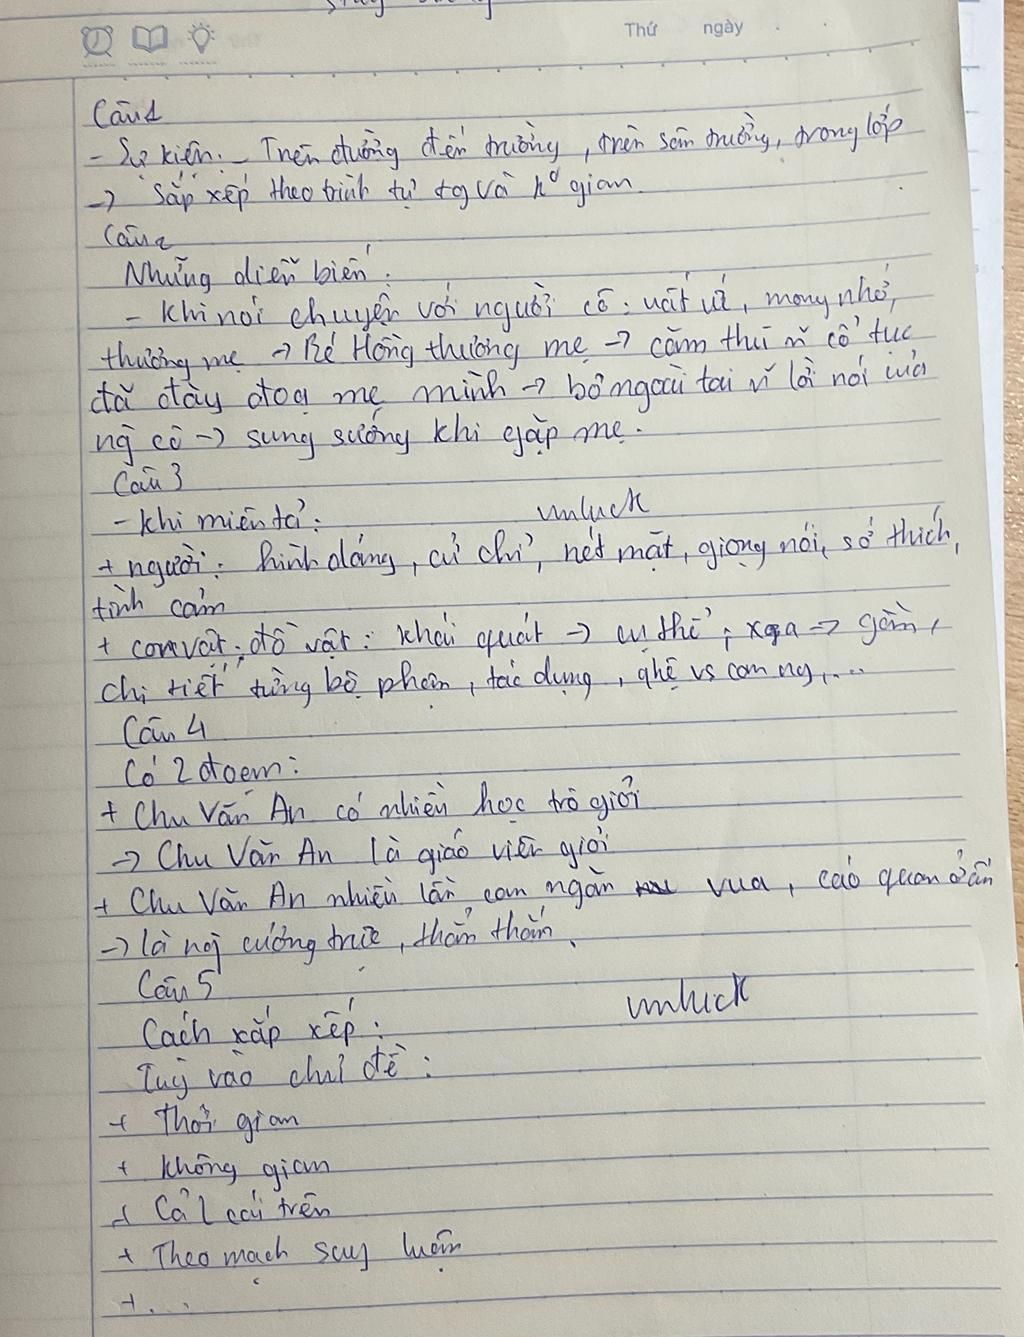 Thứ ngày
Câu 1
- Sự kiện: - Trên đường đến trường, trên sân trường, trong lớp
-> Sắp xếp theo trình tự tg và k° gian
Câu 2
Những diễn biến:
- Khi nói chuyện với người cô: uất ức, mong nhớ,
thương mẹ -> Bé Hồng thương mẹ -> căm thù cổ tục
đã đày đoạ mẹ mình -> bỏ ngoài tai lời nói của
ng cô -> sung sướng khi gặp mẹ.
Câu 3
- Khi miên tả:
unluck
+ người: hình dáng, cử chỉ, nét mặt, giọng nói, sở thích,
tình cảm
+ con vật, đồ vật: khái quát -> cụ thể, xa -> gần,
chi tiết từng bộ phận, tác dụng, qhệ vs con ng,...
Câu 4
Có 2 đoem:
+ Chu Văn An có nhiều học trò giỏi
-> Chu Văn An là giáo viên giỏi
+ Chu Văn An nhiều lần can ngăn vua, cáo quan ở ẩn
-> là ng cương trực, thẳng thắn.
Câu 5
unluck
Cách xắp xếp:
Tuỳ vào chủ đề:
+ Thời gian
+ Không gian
+ Cả 2 cái trên
+ Theo mạch suy luận
+...